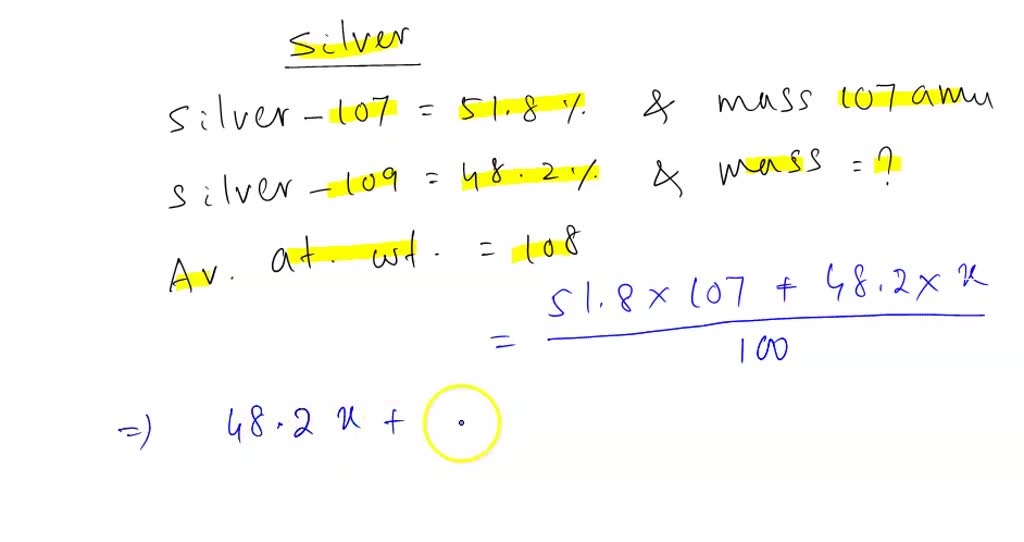 Silver
Silver - 107 = 51.8 % & mass 107 amu
Silver - 109 = 48.2 % & mass = ?
Av. at. wt. = 108
= 51.8 × 107 + 48.2 × x
100
=) 48.2 x +